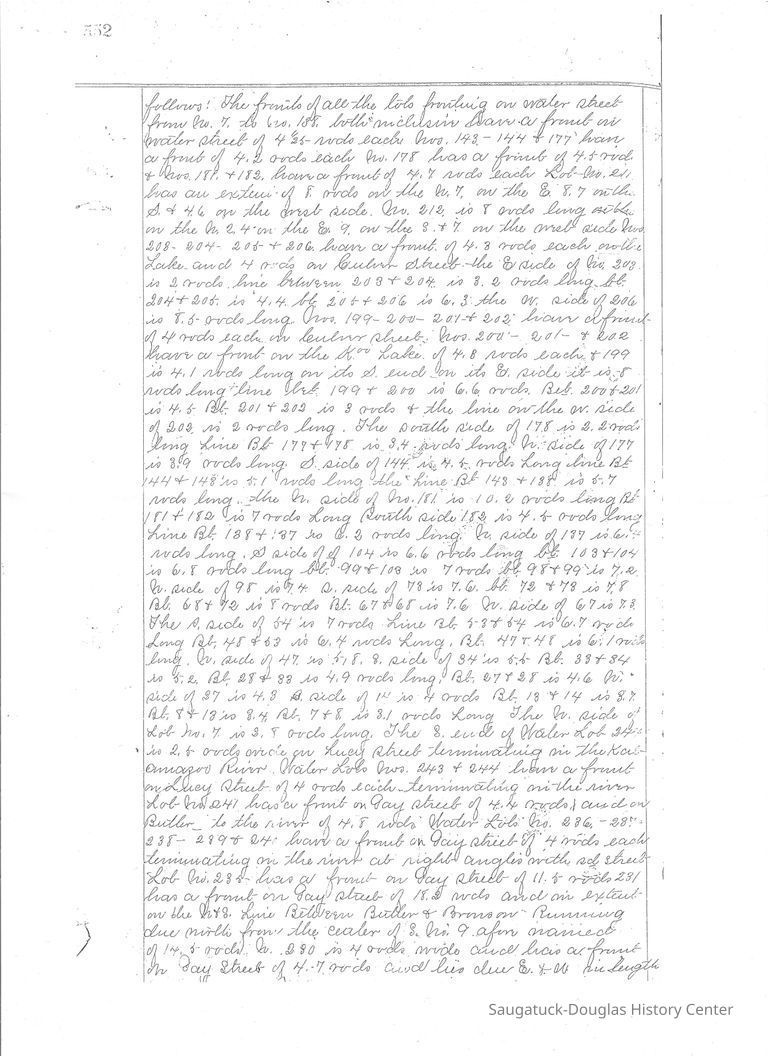 552
follows: The fronts of all the lots fronting on water street
from No. 7. to No. 188. both inclusive have a front on
water street of 4.25 rods each Nos. 143-144 & 177 have
a front of 4.2 rods each No. 178 has a front of 4.5 rods
& Nos. 181. & 182. have a front of 4.7 rods each Lot No. 211
has an extent of 8 rods on the N. 7. on the E. 8.7 on the
S. & 4.6 on the west side. No. 212. is 8 rods long
on the N. 2.4 on the E. 9. on the S. & 7. on the west side Nos.
203- 204- 205 & 206. have a front of 4.3 rods each on the
Lake and 4 rods on Culver Street the E side of No. 203
is 2 rods. line between 203 & 204. is 3.2 rods long. bt.
204 & 205. is 4.4. bt 205 & 206 is 6.3 the W. side of 206
is 8.5 rods long Nos. 199-200-201 & 202 have a front
of 4 rods each on Culver street. Nos. 200- 201- & 202
have a front on the Kzoo Lake of 4.8 rods each & 199
is 4.1 rods long on its S. end on its E. side it is 8
rods long line bet 199 & 200 is 6.6 rods. Bet. 200 & 201
is 4.5 Bt. 201 & 202 is 3 rods & the line on the W. side
of 202 is 2 rods long. The south side of 178 is 2.2 rods
long Line Bt 177 & 178 is 3.4 rods long N. side of 177
is 3.9 rods long S. side of 144 is 4.5 rods Long line Bt
144 & 143 is 5.1 rods long the Line Bt 143 & 138 is 5.7
rods long. the N. side of No. 181 is 10.2 rods long Bt
181 & 182 is 7 rods Long South side 182 is 4.5 rods long
Line Bt 138 & 137 is 6.2 rods long N. side of 137 is
rods long. S side of of 104 is 6.6 rods long bt 103 & 104
is 6.8 rods long bt. 99 & 103 is 7 rods bt 98 & 99 is 7.2
N. side of 98 is 7.4 S. side of 73 is 7.6. bt. 72 & 73 is 7.8
Bt. 68 & 72 is 8 rods Bt. 67 & 68 is 7.6 N. side of 67 is 7.3
The S. side of 54 is 7 rods. Line Bt. 53 & 54 is 6.7 rods
Long Bt. 48 & 53 is 6.4 rods Long. Bt. 47 & 48 is 6.1 rods
long. N. side of 47 is 5.8. S. side of 34 is 5.5 Bt. 33 & 34
is 5.2 Bt. 28 & 33 is 4.9 rods long. Bt. 27 & 28 is 4.6 N.
side of 27 is 4.3 S. side of 14 is 4 rods Bt. 13 & 14 is 3.7
Bt. 8 & 13 is 3.4 Bt. 7 & 8 is 3.1 rods Long The N. side of
Lot No. 7 is 2.8 rods long. The S. end of Water Lot
is 2.5 rods wide on Lucy Street terminating in the Kal-
amazoo River. Water Lots Nos. 243 & 244 have a front
on Lucy Street of 4 rods each terminating on the river
Lot No. 241 has a front on Gay street of 4.4 rods, and on
Butler to the river of 4.8 rods Water Lots No. 236.-237-
238- 239 & 240 have a front on Gay street of 4 rods each
terminating on the river at right angles with sd street
Lot No. 235 has a front on Gay Street of 11.5 rods 231
has a front on Gay street of 18.2 rods and an extent
on the N & S. Line Between Butler & Bronson Running
due north from the center of S. No. 9 afore named
of 14.5 rods. N. 230 is 4 rods wide and has a front
on Gay Street of 4.7 rods and lies due E. & W in length
Saugatuck-Douglas History Center